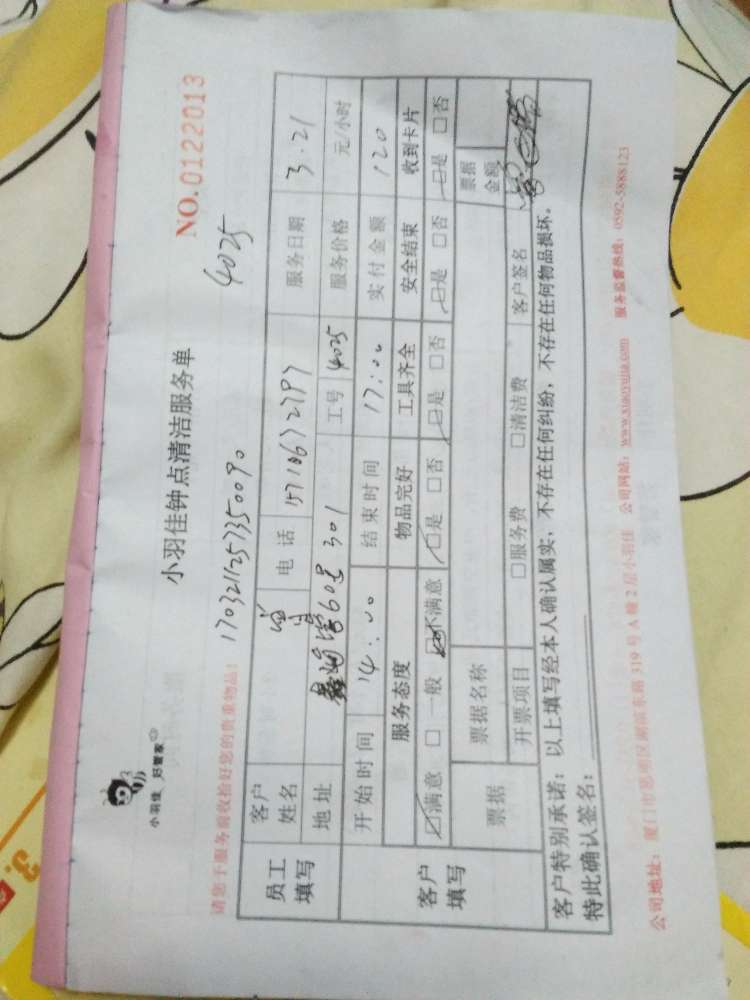 小羽佳 好管家
小羽佳钟点清洁服务单
NO.0122013
请您于服务前收拾好您的贵重物品!
1703211257350090
4025
员工填写
客户姓名
电话
15710672797
服务日期
3.21
地址
60号 301
工号
4025
服务价格
元/小时
客户填写
开始时间
14:00
结束时间
17:00
实付金额
120
服务态度
物品完好
工具齐全
安全结束
收到卡片
☑满意 □一般 不满意
☑是 □否
☑是 □否
☑是 □否
☑是 □否
票据
票据名称
票据金额
开票项目
□服务费 □清洁费
客户签名
客户特别承诺：以上填写经本人确认属实，不存在任何纠纷，不存在任何物品损坏。
特此确认签名：
公司地址：厦门市思明区湖滨东路 319 号 A 幢 2 层小羽佳 公司网站：www.xiaoyujia.com 服务监督热线：0592-5888123